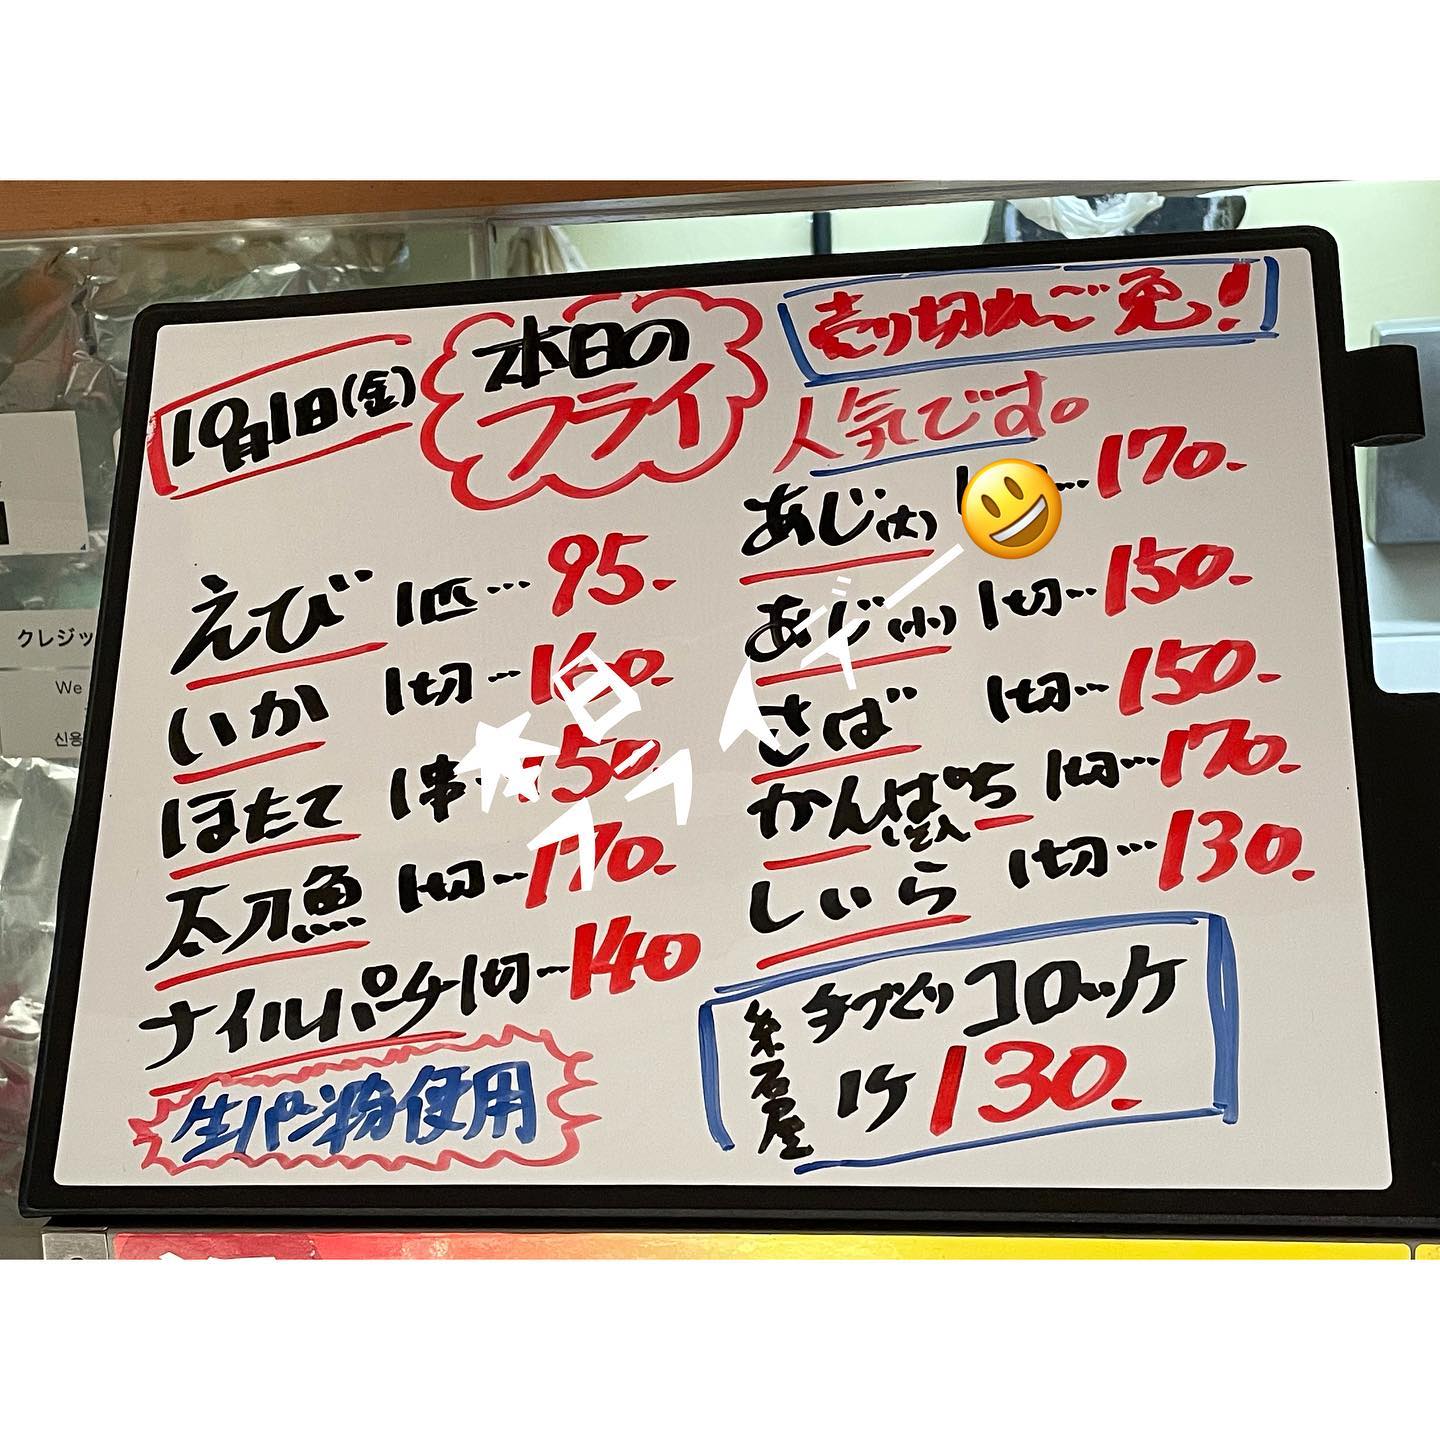 10月1日(金)
本日の
フライ
売り切れご免!
人気です。
えび 1匹…95.
いか 1切…160.
ほたて 1串…150.
太刀魚 1切…170.
ナイルパーチ 1切…140
生パン粉使用
あじ(大) 170.
あじ(小) 1切…150.
さば 1切…150.
かんぱち 1切…170.
しいら 1切…130.
手づくりコロッケ
1ケ 130.
クレジッ
We
신용
本日
フライデー